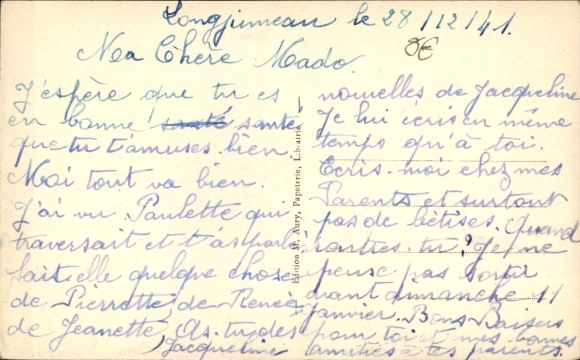 Longjumeau le 28/12/41.
8€
Ma Chère Mado
J'espère que tu es
en bonne santé santé
que tu t'amuses bien
Moi tout va bien.
J'ai vu Paulette qui
traversait et t'as parlé
Sait elle quelque chose
de Pierrette, de Renée
de Jeanette, As-tu des
nouvelles de Jacqueline
Je lui écris en même
temps qu'à toi.
Ecris-moi chez mes
Parents et surtout
pas de bêtises. Quand
rentres-tu? Je ne
pense pas sortir
avant dimanche 11
janvier. Bons Baisers
pour toi et mes bonnes
amitiés à tes parents.
Jacqueline
Edition M. Aury, Papeterie, Librairie